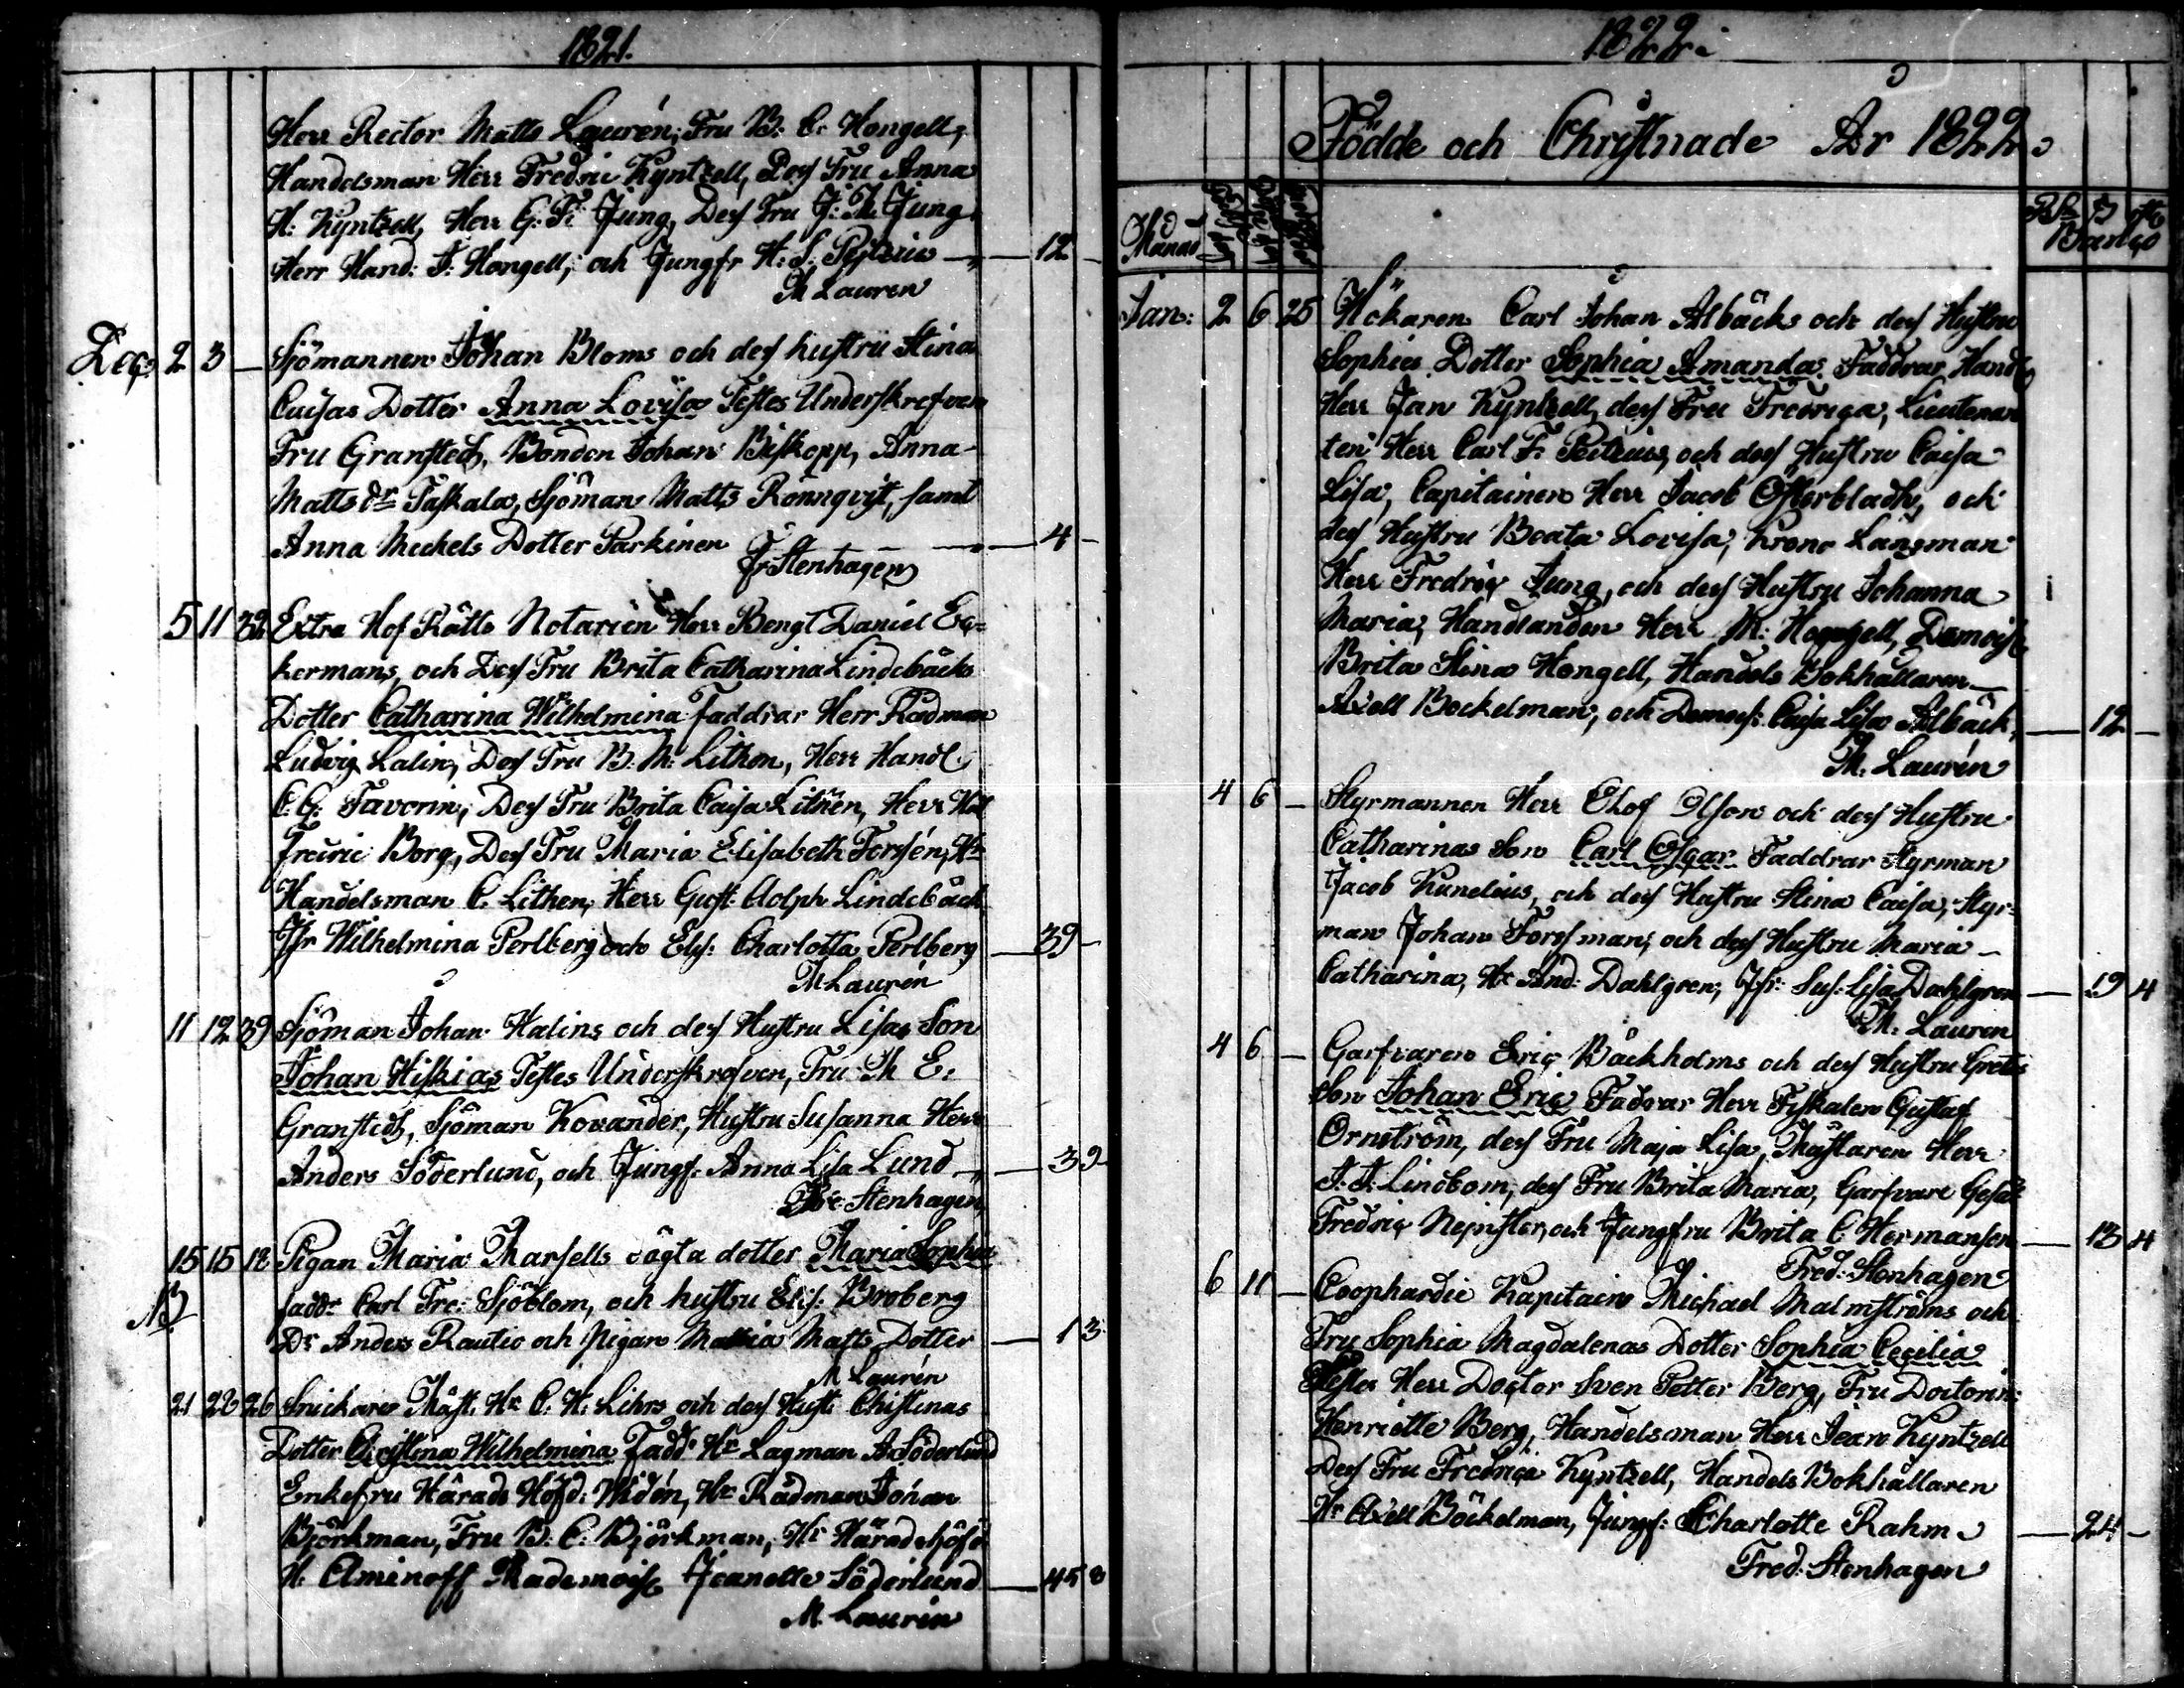 1821.
Herr Rector Matts Laurén, Fru B: C: Hongell,
Handelsman Herr Fredric Kyntzell, Dess Fru Anna
H: Kyntzell, Herr G: F: Jung, Dess Fru J: M: Jung
Herr Hand: J: Hongell, och Jungfr H: S: — 12 -
M Lauren
Dec: 2 3 — Sjömannen Johan Bloms och dess hustru Stina
Caisas Dotter Anna Lovisa Testes Underskrefven
Fru Granstedt, Bonden Johan Biskopp, Anna
Matts dr Taskala, Sjöman Matts Rönnqvist, samt
Anna Mickels Dotter Parkinen — 4 -
Fr Stenhagen
5 11 32 Extra Hof Rätts Notarien Herr Bengt Daniel Ec-
kermans, och Dess Fru Brita Catharina Lindebäcks
Dotter Catharina Wilhelmina Faddrar Herr Rådman
Ludvig Lalin, Dess Fru B: M: Lithen, Herr Handl.
C. G: Favorin, Dess Fru Brita Caisa Lithen, Herr
Fredric Borg, Dess Fru Maria Elisabeth Forssén, Hr
Handelsman C. Lithen, Herr Gust: Adolph Lindebäck
Jfr Wilhelmina Perlberg och Els: Charlotta Perlberg — 39 -
M Laurén
11 12 39 Sjöman Johan Halins och dess Hustru Lisas Son
Johan Hiskias Testes Underskrefven, Fru M E.
Granstedt, Sjöman Kovander, Hustru Susanna Herr
Anders Söderlund, och Jungf: Anna Lisa Lund — 39
Fr: Stenhagen
15 15 12 Pigan Maria Marsells oägta dotter Maria Sophia
NB
fadd: Carl Fre: Sjöblom, och hustru Elis: Broberg
Dr Anders Rautio och pigan Maria Matts Dotter — 13
M Laurén
21 26 26 Snickare Mäst. Hr C. H: Lihrs och dess Hust: Christinas
Dotter Christina Wilhelmina Fadd: Hr Lagman A Söderlund
Enkefru Härads Höfd: Widén, Hr Rådman Johan
Björkman, Fru B: C: Björkman, Hr Häradshöfd
H: Aminoff Mademois: Jeanette Söderlund — 45 8
M. Laurén
1822.
Födde och Christnade År 1822.
Månad
Banco
Jan: 2 6 25 Hökaren Carl Johan Albäcks och dess Hustru
Sophies Dotter Sophia Amanda Faddrar Hand
Herr Jan Kyntzell, dess Fru Fredrica, Lieutenan
ten Herr Carl F: och dess Hustru Caisa
Lisa, Capitainen Herr Jacob Österbladh, och
dess Hustru Beata Lovisa, Krono Länsman
Herr Fredric Jung, och dess Hustru Johanna
Maria, Handlanden Herr M: Hongell, Demois:
Brita Stina Hongell, Handels Bokhållaren
Axell Bockelman, och Demois: Caisa Lisa Albäck, — 12 -
M. Laurén
4 6 — Styrmannen Herr Elof Olson och dess Hustru
Catharinas Son Carl Osgar Faddrar Styrman
Jacob Kunelius, och dess Hustru Stina Caisa, Styr-
man Johan Forssman, och dess Hustru Maria
Catharina, Hr And: Dahlgren, Jfr: Sus: Lisa Dahlgren — 19 4
M. Lauren
4 6 — Garfvaren Eric Bäckholms och dess Hustru Gretes
Son Johan Eric Fadrar Herr Fiskalen Gustaf
Ornström, dess Fru Maja Lisa, Mästaren Herr
J. J: Lindbom, dess Fru Brita Maria, Garfvare Gesäll
Fredric och Jungfru Brita C Hermanson — 13 4
Fred: Stenhagen
6 11 — Coophardie Kapitain Michael Malmströms och
Fru Sophia Magdalenas Dotter Sophia Cecilia
Testes Herr Doctor Sven Petter Berg, Fru Doctorin:
Henriette Berg, Handelsman Herr Jean Kyntzell
Dess Fru Fredrica Kyntzell, Handels Bokhållaren
Hr Axell Böckelman, Jungf: Charlotte Rahm — 24 -
Fred: Stenhagen